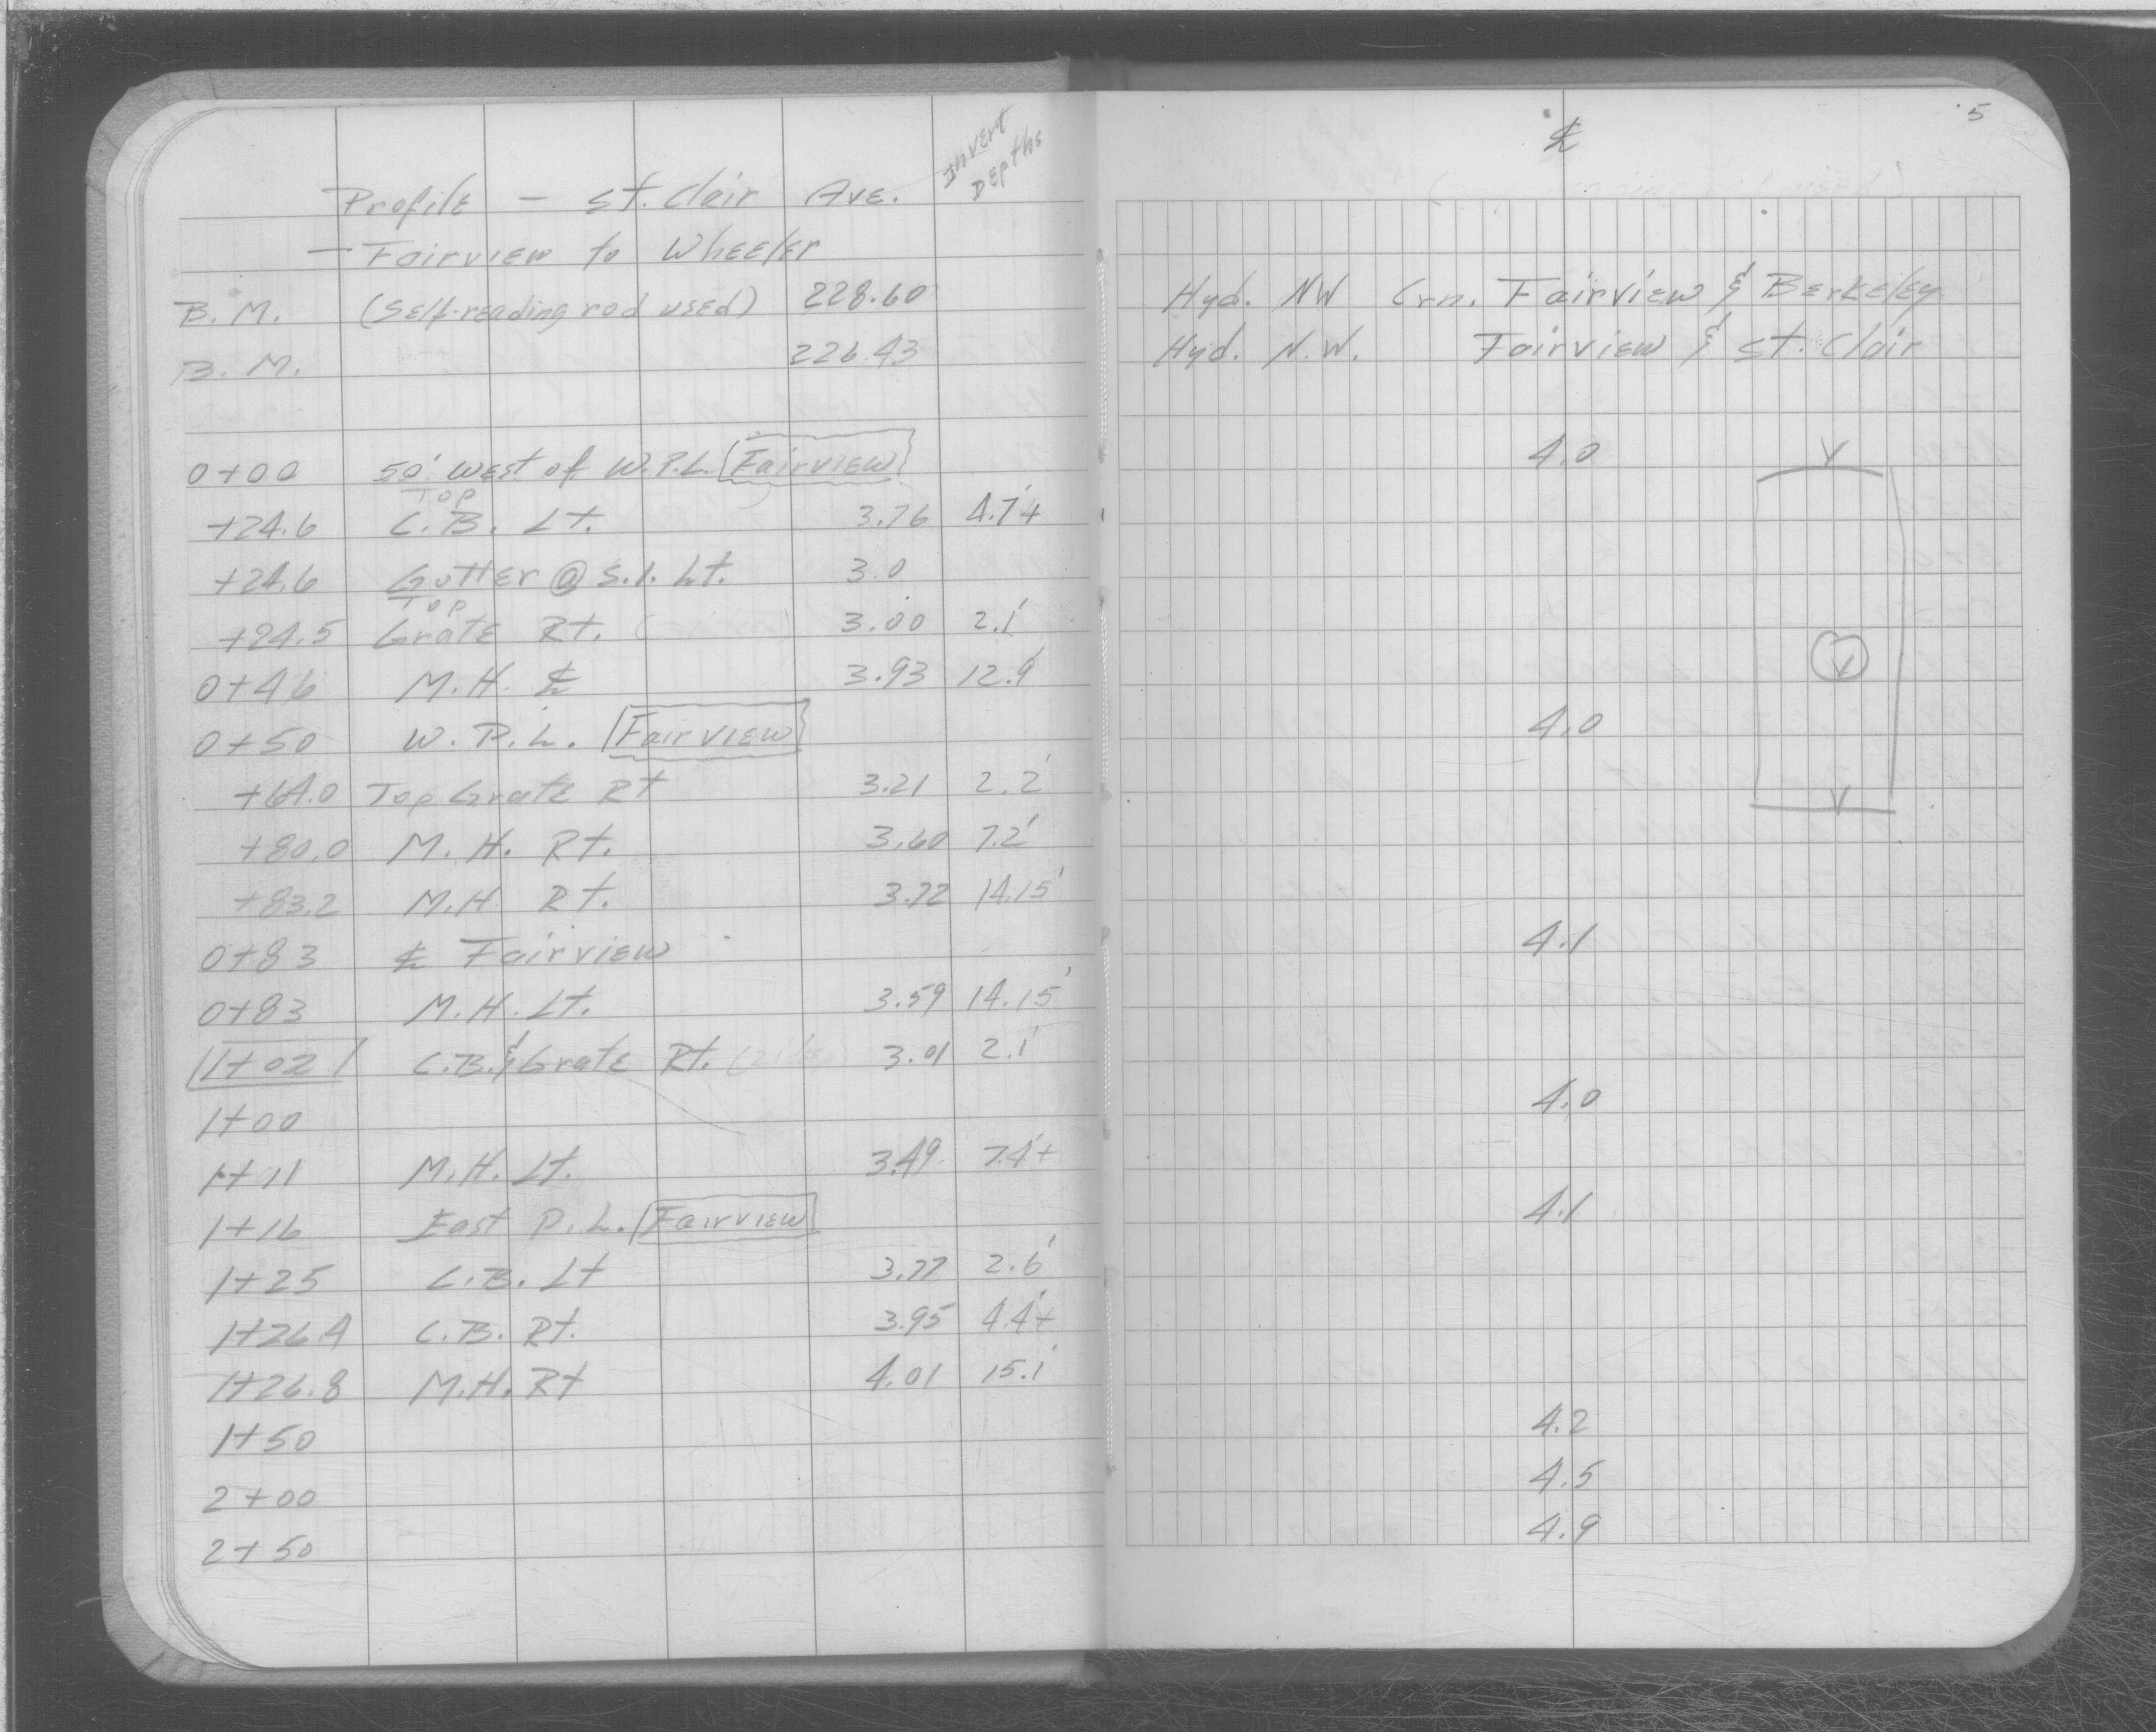 5
Invert
Depths
℄
Profile — St. Clair Ave.
— Fairview to Wheeler
B.M. (Self-reading rod used) 228.60 Hyd. NW Crn. Fairview & Berkeley
B.M. 226.43 Hyd. N.W. Fairview & St. Clair
0+00 50' west of W.P.L. Fairview 4.0
Top
+24.6 C.B. Lt. 3.76 4.7'+
+24.6 Gutter @ S.I. Lt. 3.0
Top
+24.5 Grate Rt. 3.00 2.1'
0+46 M.H. ℄ 3.93 12.9'
0+50 W.P.L. Fairview 4.0
+64.0 Top Grate Rt 3.21 2.2'
+80.0 M.H. Rt. 3.60 7.2'
+83.2 M.H. Rt. 3.72 14.15'
0+83 ℄ Fairview 4.1
0+83 M.H. Lt. 3.59 14.15'
1+02 C.B. & Grate Rt. 3.01 2.1'
1+00 4.0
1+11 M.H. Lt. 3.49 7.4'+
1+16 East P.L. Fairview 4.1
1+25 C.B. Lt 3.77 2.6'
1+26.4 C.B. Rt. 3.95 4.4'+
1+26.8 M.H. Rt 4.01 15.1'
1+50 4.2
2+00 4.5
2+50 4.9